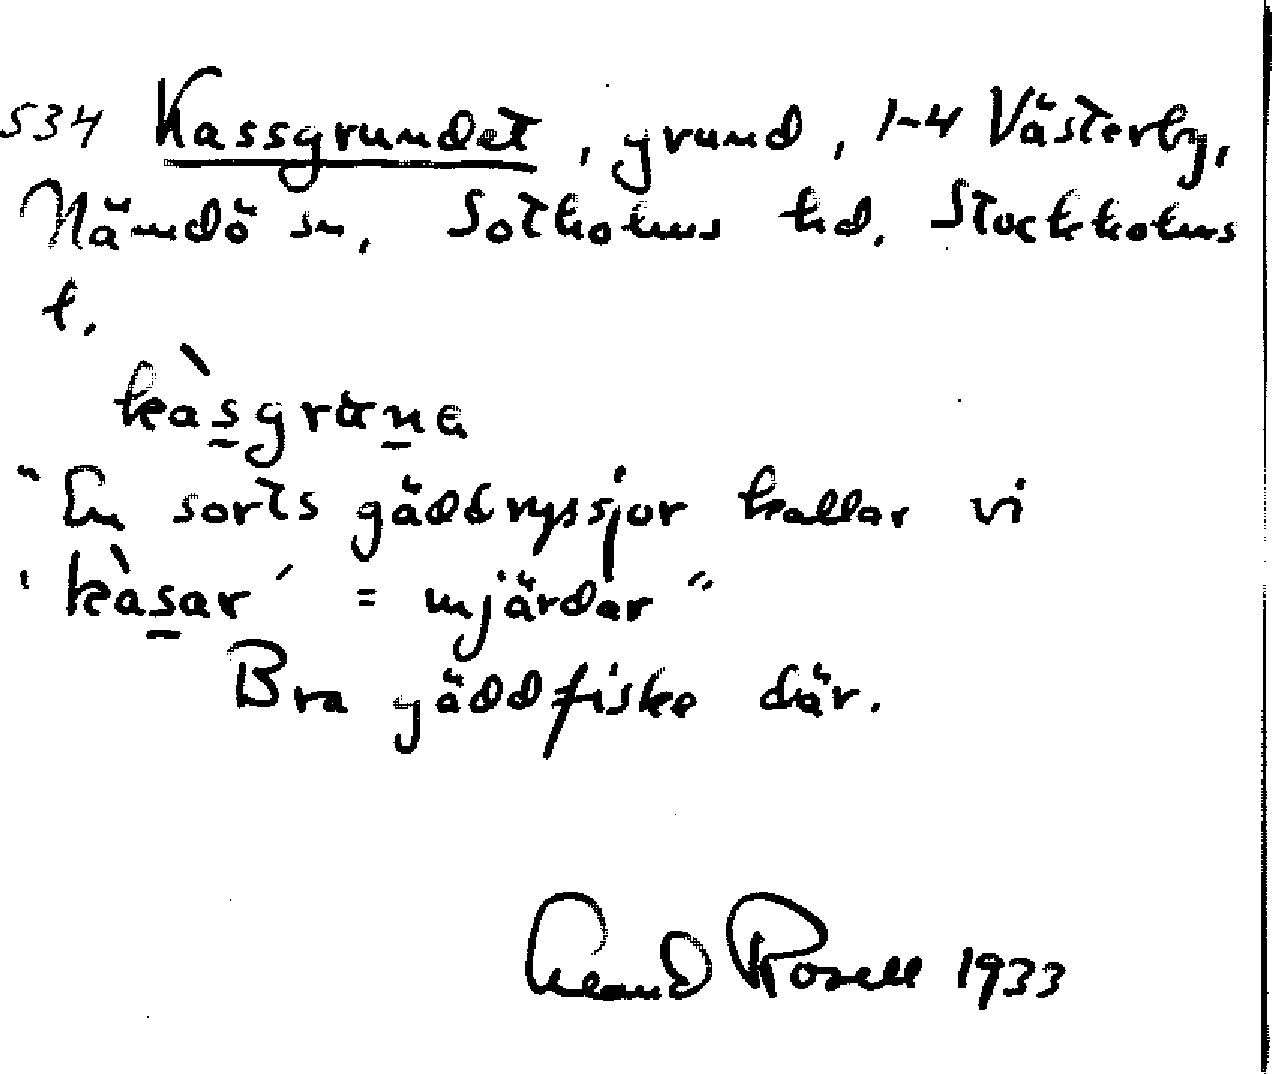 534 Kassgrundet, grund, 1-4 Västerby,
Nämdö sn, Sotholms hd. Stockholms
l.
kàsgrɯna
"En sorts gäddryssjor kallar vi
'kàsar' = mjärdar"
Bra gäddfiske där.
Rosell 1933